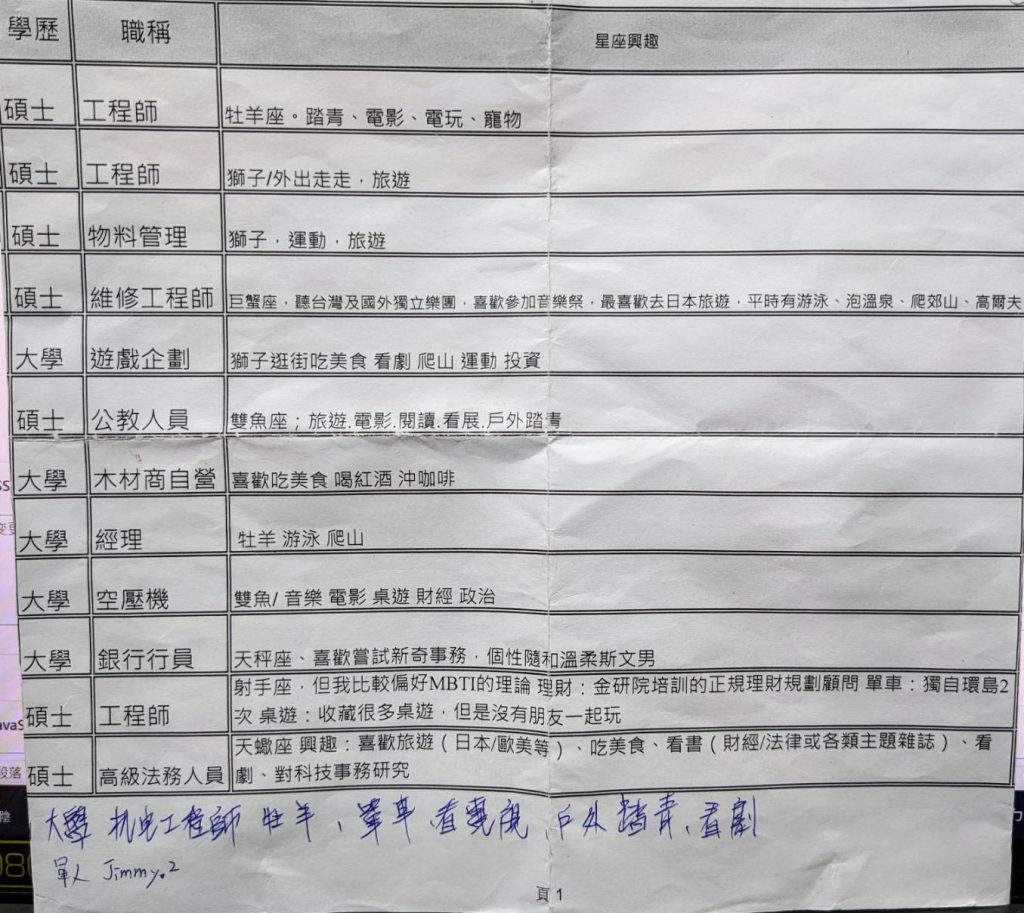 學歷 職稱 星座興趣
碩士 工程師 牡羊座。踏青、電影、電玩、寵物
碩士 工程師 獅子/外出走走,旅遊
碩士 物料管理 獅子,運動,旅遊
碩士 維修工程師 巨蟹座,聽台灣及國外獨立樂團,喜歡參加音樂祭,最喜歡去日本旅遊,平時有游泳、泡溫泉、爬郊山、高爾夫
大學 遊戲企劃 獅子逛街吃美食 看劇 爬山 運動 投資
碩士 公教人員 雙魚座;旅遊.電影.閱讀.看展.戶外踏青
大學 木材商自營 喜歡吃美食 喝紅酒 沖咖啡
大學 經理 牡羊 游泳 爬山
大學 空壓機 雙魚/ 音樂 電影 桌遊 財經 政治
大學 銀行行員 天秤座、喜歡嘗試新奇事務,個性隨和溫柔斯文男
碩士 工程師 射手座,但我比較偏好MBTI的理論 理財:金研院培訓的正規理財規劃顧問 單車:獨自環島2
次 桌遊:收藏很多桌遊,但是沒有朋友一起玩
碩士 高級法務人員 天蠍座 興趣:喜歡旅遊(日本/歐美等)、吃美食、看書(財經/法律或各類主題雜誌)、看
劇、對科技事務研究
大學 机电工程師 牡羊、單車、看電視、戶外踏青、看劇
軍人 Jimmy.2
頁 1